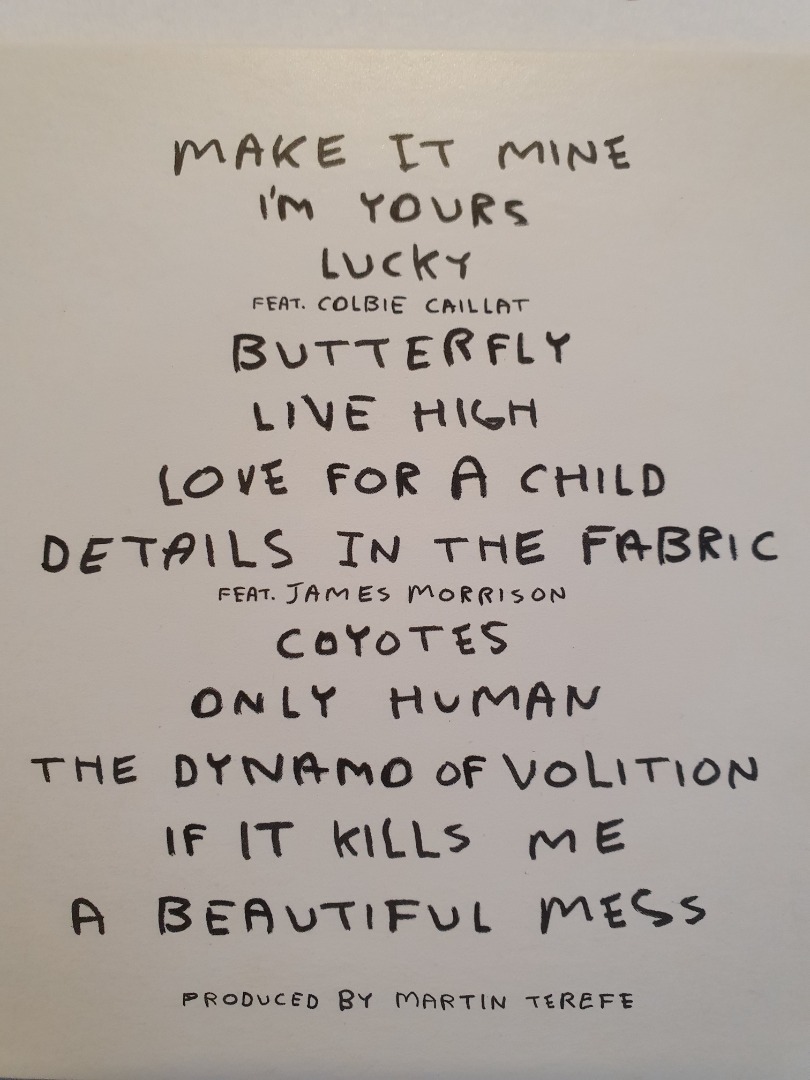 MAKE IT MINE
I'M YOURS
LUCKY
FEAT. COLBIE CAILLAT
BUTTERFLY
LIVE HIGH
LOVE FOR A CHILD
DETAILS IN THE FABRIC
FEAT. JAMES MORRISON
COYOTES
ONLY HUMAN
THE DYNAMO OF VOLITION
IF IT KILLS ME
A BEAUTIFUL MESS
PRODUCED BY MARTIN TEREFE